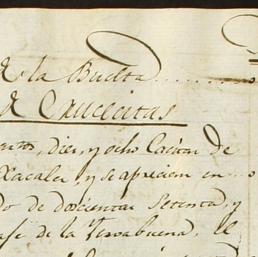 de la Buelta
de Crucecitas
diez, y ocho Casas de
Xacales, y se aprecian en
do de doscientos setenta, y
de la Yerva buena, el